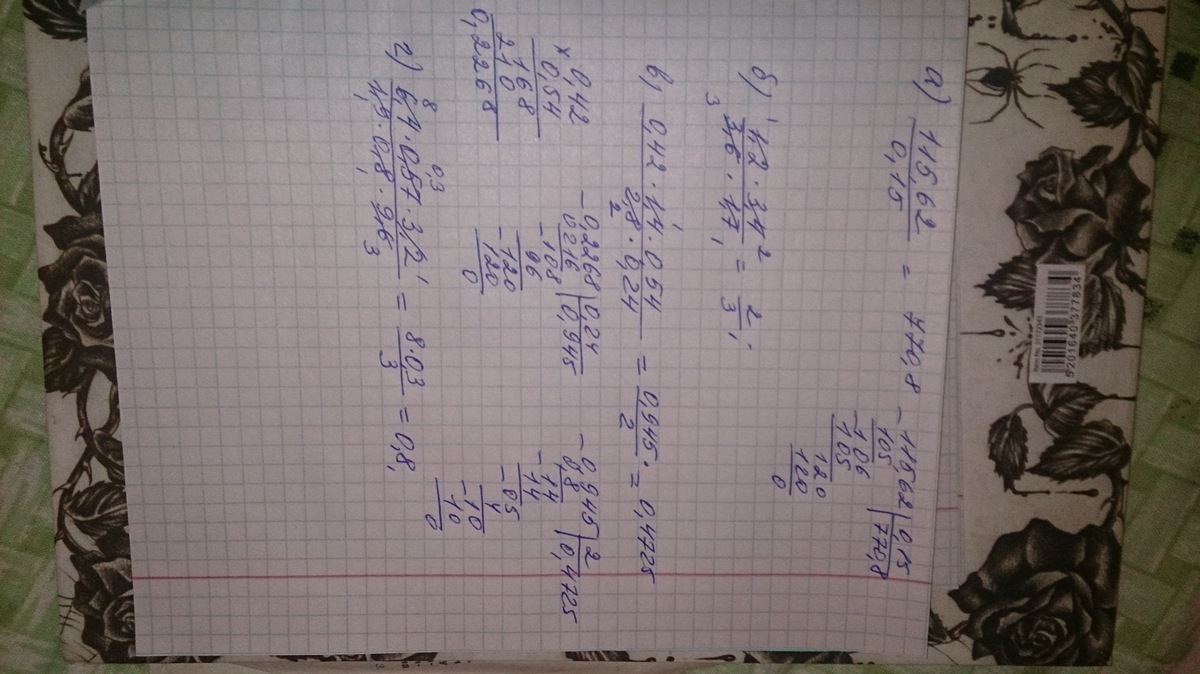 а) 115,62 / 0,15 = 770,8
- 115,62 | 0,15
105 | 770,8
- 106
105
120
120
0
б) 1,2 · 3,4 / 3,6 · 1,7 = 2/3;
1 2
3 1
в) 0,42 · 1,4 · 0,54 / 2,8 · 0,24 = 0,945 / 2 = 0,4725
1
2
× 0,42
0,54
168
210
0,2268
- 0,2268 | 0,24
0216 | 0,945
- 108
96
- 120
120
0
- 0,945 | 2
0,8 | 0,4725
- 14
14
- 05
4
- 10
10
0
г) 6,4 · 0,57 · 3,2 / 1,9 · 0,8 · 9,6 = 8 · 0,3 / 3 = 0,8,
8 0,3 1
1 3
Item No. 37177043
5 201640 377834